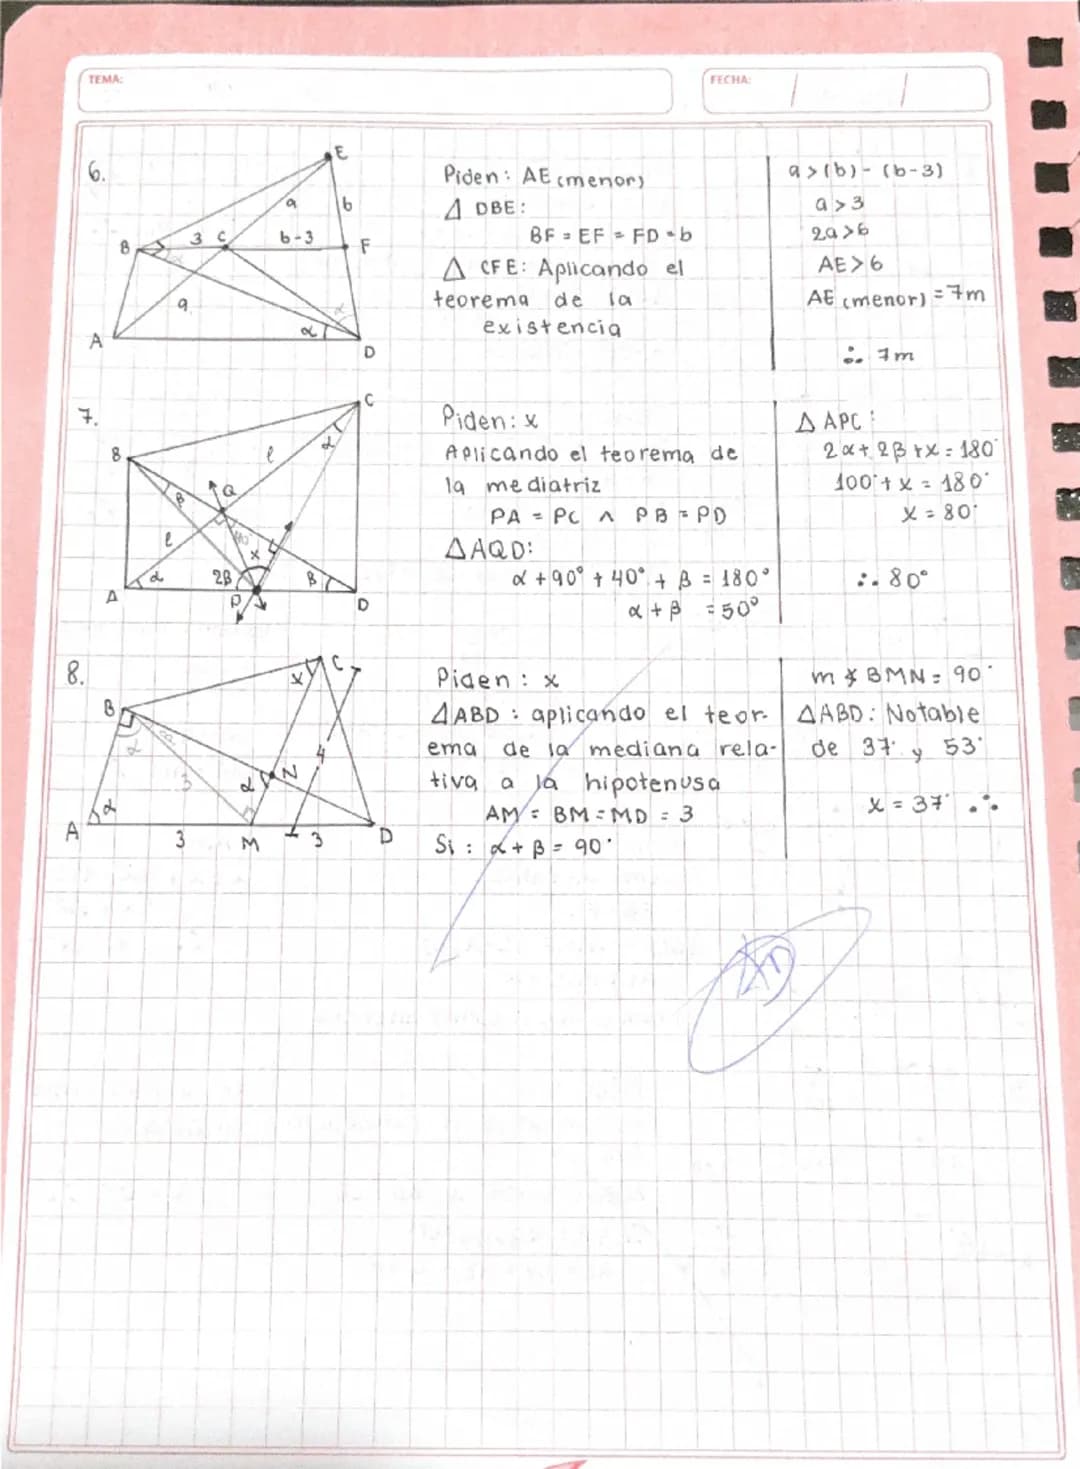 TEMA:
FECHA:
6.
E
a
b
B
3
C
b-3
F
a
α
α
A
D
Piden: AE (menor)
△ DBE:
BF = EF = FD = b
△ CFE: Aplicando el
teorema de la
existencia
a > (b) - (b-3)
a > 3
2a > 6
AE > 6
AE (menor) = 7m
∴ 7m
7.
C
α
B
ℓ
β
Q
40°
ℓ
x
α
2β
β
A
P
D
Piden: x
Aplicando el teorema de
la mediatriz
PA = PC ∧ PB = PD
△AQD:
α + 90° + 40° + β = 180°
α + β = 50°
△ APC:
2α + 2β + x = 180°
100° + x = 180°
x = 80°
∴ 80°
8.
C
x
B
α
β
4
3
α
N
α
A
3
M
3
D
Piden: x
△ABD: aplicando el teor-
ema de la mediana rela-
tiva a la hipotenusa
AM = BM = MD = 3
Si: α + β = 90°
m∡BMN = 90°
△ABD: Notable
de 37° y 53°
x = 37° ∴